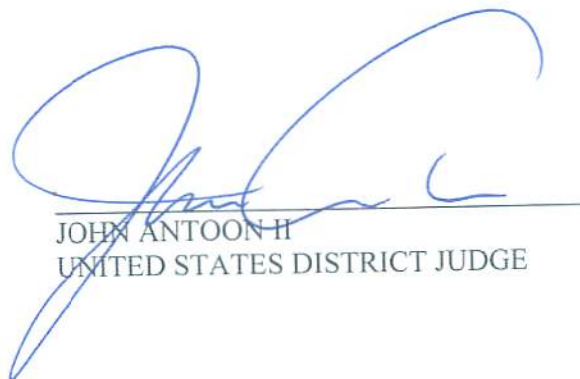 JOHN ANTOON II
UNITED STATES DISTRICT JUDGE